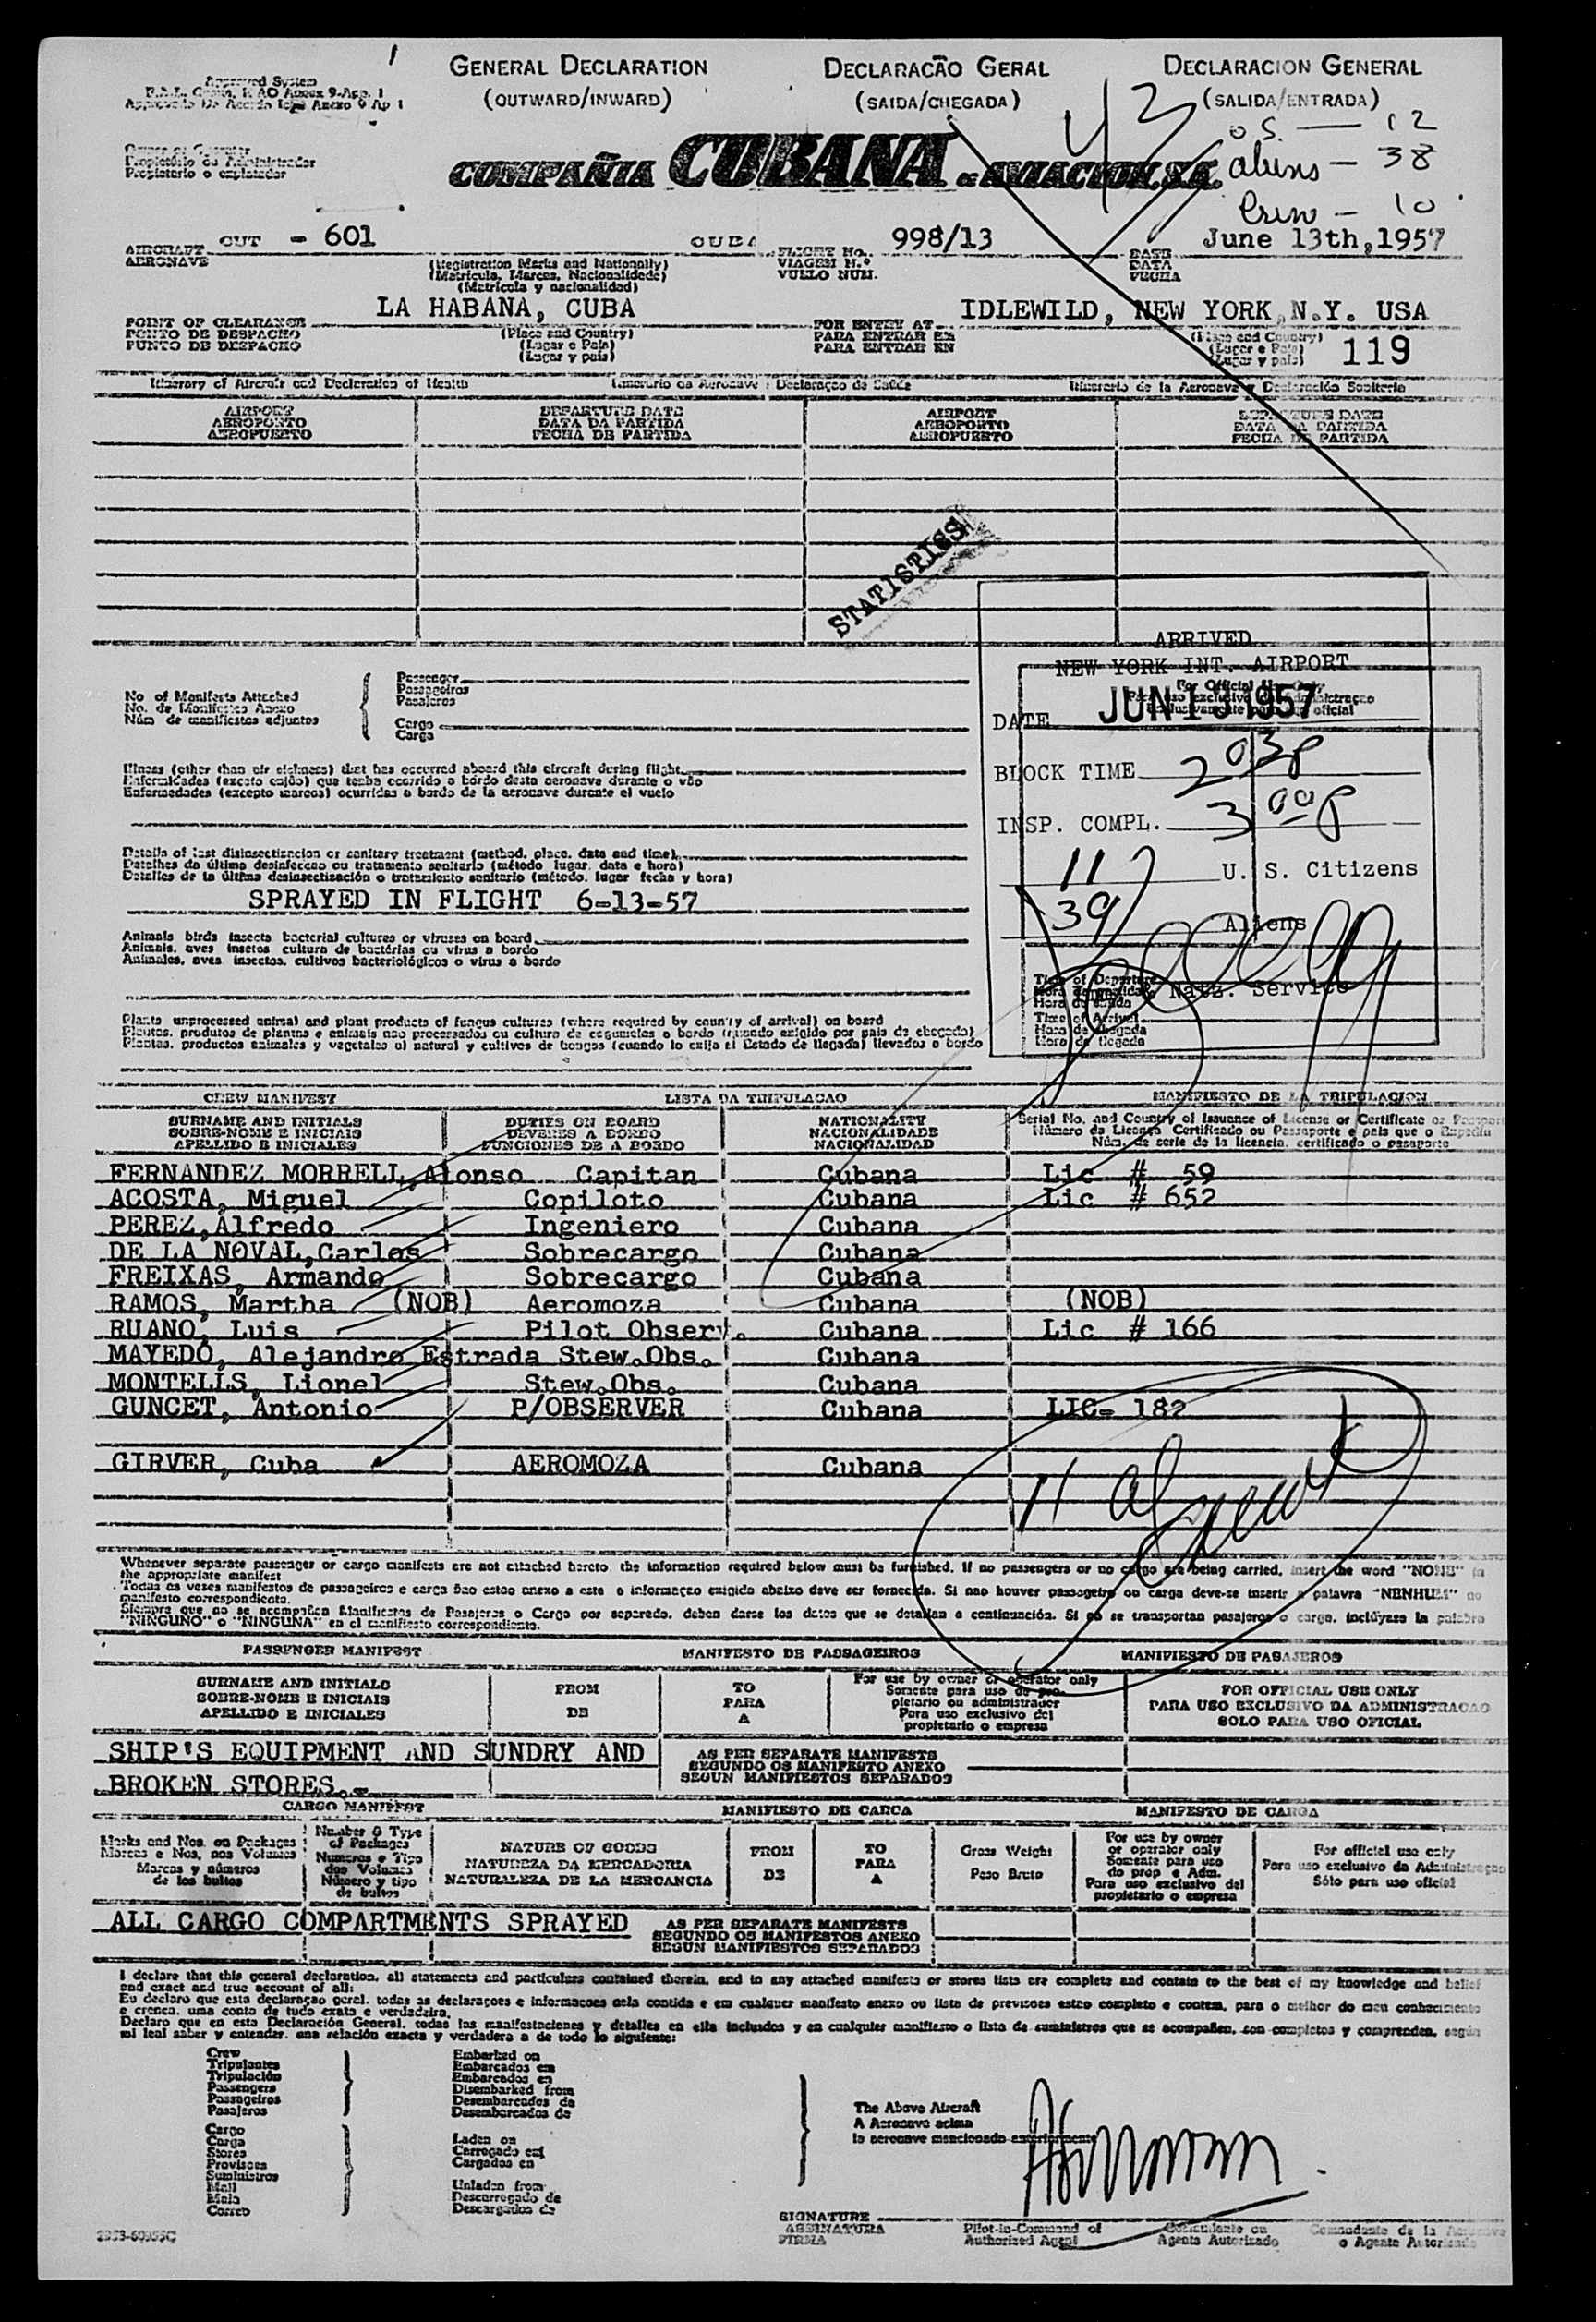 GENERAL DECLARATION
(OUTWARD/INWARD)
DECLARACÃO GERAL
(SAIDA/CHEGADA)
DECLARACION GENERAL
(SALIDA/ENTRADA)
Approved System
43
o S. — 12
aliens — 38
Crew — 10
Propietario o explotador
COMPAÑIA CUBANA DE AVIACION, S.A.
AIRCRAFT CUT - 601 CUBA
AERONAVE
(Registration Marks and Nationality)
(Matricula, Marcas, Nacionalidade)
(Matricula y nacionalidad)
FLIGHT No. 998/13
VIAGEM N.º
VUELO NUM.
DATE June 13th,1957
DATA
FECHA
POINT OF CLEARANCE LA HABANA, CUBA
PONTO DE DESPACHO
PUNTO DE DESPACHO
(Place and Country)
(Lugar e Pais)
(Lugar y pais)
FOR ENTRY AT IDLEWILD, NEW YORK, N.Y. USA
PARA ENTRAR EM
PARA ENTRAR EN
(Place and Country)
(Lugar e Pais)
(Lugar y pais)
119
Itinerary of Aircraft and Declaration of Health
Itinerario de la Aeronave y Declaración Sanitaria
AIRPORT DEPARTURE DATE AIRPORT DEPARTURE DATE
AEROPORTO DATA DA PARTIDA AEROPORTO DATA DA PARTIDA
AEROPUERTO FECHA DE PARTIDA AEROPUERTO FECHA DE PARTIDA
STATISTICS
No of Manifests Attached
No. de Manifestos Anexo
Núm de manifiestos adjuntos
Passenger
Passageiros
Pasajeros
Cargo
Carga
ARRIVED
NEW YORK INT. AIRPORT
For Official Use Only
DATE JUN 13 1957
BLOCK TIME 2 03 p
INSP. COMPL. 3 00 p
11 U. S. Citizens
39 Aliens
Natz. Service
Time of Departure
Time of Arrival
Hora de llegada
Illness (other than air sickness) that has occurred aboard this aircraft during flight
Enfermidades (exceto enjôo) que tenha ocorrido a bordo desta aeronave durante o vôo
Enfermedades (excepto mareos) ocurridas a bordo de la aeronave durante el vuelo
Details of last disinsectization or sanitary treatment (method, place, date and time)
Detalhes da última desinfeccao ou tratamento sanitario (método lugar, data e hora)
Detalles de la última desinsectización o tratamiento sanitario (método, lugar fecha y hora)
SPRAYED IN FLIGHT 6-13-57
Animals birds insects bacterial cultures or viruses on board
Animais, aves insetos cultura de bactérias ou virus a bordo
Animales, aves insectos, cultivos bacteriológicos o virus a bordo
Plants unprocessed animal and plant products of fungus cultures (where required by country of arrival) on board
Plantas, productos animales y vegetales al natural y cultivos de hongos (cuando lo exija el Estado de llegada) llevados a bordo
CREW MANIFEST LISTA DA TRIPULACAO MANIFIESTO DE LA TRIPULACION
SURNAME AND INITIALS DUTIES ON BOARD NATIONALITY Serial No. and Country of Issuance of License or Certificate or Passport
SOBRE-NOME E INICIAIS DEVERES A BORDO NACIONALIDADE Número da Licença Certificado ou Passaporte e pais que o Expediu
APELLIDO E INICIALES FUNCIONES DE A BORDO NACIONALIDAD Núm. de serie de la licencia, certificado o pasaporte
FERNANDEZ MORRELL,Alonso Capitan Cubana Lic # 59
ACOSTA, Miguel Copiloto Cubana Lic # 652
PEREZ,Alfredo Ingeniero Cubana
DE LA NOVAL,Carlos Sobrecargo Cubana
FREIXAS, Armando Sobrecargo Cubana
RAMOS, Martha (NOB) Aeromoza Cubana (NOB)
RUANO, Luis Pilot Observ. Cubana Lic # 166
MAYEDO, Alejandro Estrada Stew.Obs. Cubana
MONTELLS, Lionel Stew.Obs. Cubana
GUNCET, Antonio P/OBSERVER Cubana LIC- 182
GIRVER, Cuba AEROMOZA Cubana
11 al
Crew
Whenever separate passenger or cargo manifests are not attached hereto, the information required below must be furnished. If no passengers or no cargo are being carried, insert the word "NONE" in
the appropriate manifest
Todas as vezes manifestos de passageiros e carga não estao anexo a este o informaçao exigida abaixo deve ser fornecida. Si nao houver passageiro ou carga deve-se inserir a palavra "NENHUM" no
manifesto correspondiente.
Siempre que no se acompañen Manifiestos de Pasajeros o Cargo por separado, deben darse los datos que se detallan a continuación. Si no se transportan pasajeros o cargo, inclúyase la palabra
"NINGUNO" o "NINGUNA" en el manifiesto correspondiente.
PASSENGER MANIFEST MANIFESTO DE PASSAGEIROS MANIFIESTO DE PASAJEROS
SURNAME AND INITIALS FROM TO For use by owner or operator only FOR OFFICIAL USE ONLY
SOBRE-NOME E INICIAIS DE PARA Somente para uso do propietario ou administrador PARA USO EXCLUSIVO DA ADMINISTRACAO
APELLIDO E INICIALES A Para uso exclusivo del propietario o empresa SOLO PARA USO OFICIAL
SHIP'S EQUIPMENT AND SUNDRY AND
BROKEN STORES.-
AS PER SEPARATE MANIFESTS
SEGUNDO OS MANIFESTO ANEXO
SEGUN MANIFIESTOS SEPARADOS
CARGO MANIFEST MANIFIESTO DE CARGA MANIFESTO DE CARGA
Marks and Nos. on Packages
Marcas e Nos. nos Volumes
Marcas y números
de los bultos
Number & Type
of Packages
Numeros e Tipo
dos Volumes
Número y tipo
de bultos
NATURE OF GOODS
NATUREZA DA MERCADORIA
NATURALEZA DE LA MERCANCIA
FROM
DE
TO
PARA
A
Gross Weight
Peso Bruto
For use by owner
or operator only
Somente para uso
do prop e Adm.
Para uso exclusivo del
propietario o empresa
For official use only
Para uso exclusivo da Administraçao
Sólo para uso oficial
ALL CARGO COMPARTMENTS SPRAYED
AS PER SEPARATE MANIFESTS
SEGUNDO OS MANIFESTOS ANEXO
SEGUN MANIFIESTOS SEPARADOS
I declare that this general declaration, all statements and particulars contained therein, and in any attached manifests or stores lists are complete and contain to the best of my knowledge and belief
and exact and true account of all:
Eu declaro que esta declaraçao geral, todas as declaraçoes e informacoes nela contida e em cualquer manifesto anexo ou lista de previsoes estao completo e contem, para o melhor do meu conhecimento
e crenca, uma conta de tudo exata e verdadeira.
Declaro que en esta Declaración General, todas las manifestaciones y detalles en ella incluidos y en cualquier manifiesto o lista de suministros que se acompañen, son completos y comprenden, según
mi leal saber y entender, una relación exacta y verdadera a de todo lo siguiente:
Crew
Tripulantes
Tripulación
Passengers
Passageiros
Pasajeros
Cargo
Carga
Stores
Provisoes
Suministros
Mail
Mala
Correo
Embarked on
Embarcados em
Embarcados en
Disembarked from
Desembarcados da
Desembarcados de
Laden on
Carregado em
Cargados en
Unladen from
Descarregado de
Descargados de
The Above Aircraft
A Aeronave acima
la aeronave mencionada anteriormente
SIGNATURE
ASSINATURA
FIRMA
Pilot-in-Command of
Authorized Agent
Comandante ou
Agente Autorizado
Comandante de la Aeronave
o Agente Autorizado